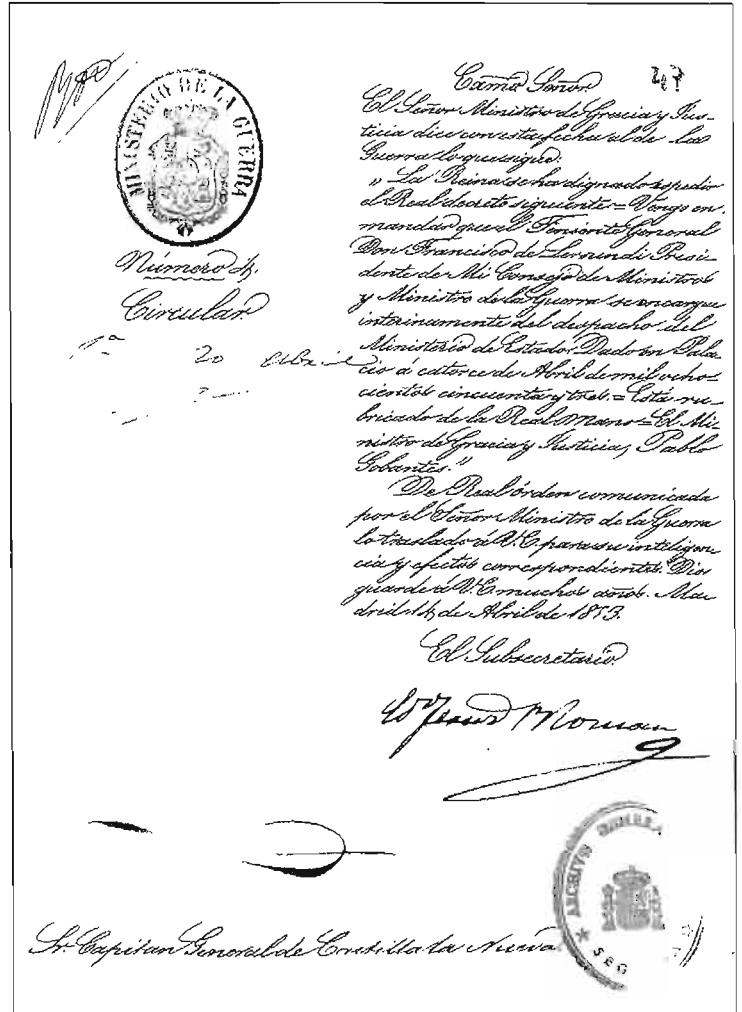 MINISTERIO DE LA GUERRA
Número 14.
Circular
1ª 20 Abril
Excmo Señor
El Señor Ministro de Gracia y Jus-
ticia dice con esta fecha al de la
Guerra lo que sigue:
„La Reina se ha dignado espedir
el Real decreto siguiente = Vengo en
mandar que el Teniente General
Don Francisco de Lersundi Presi-
dente de Mi Consejo de Ministros
y Ministro de la Guerra se encargue
interinamente del despacho del
Ministerio de Estado. Dado en Pala-
cio á catorce de Abril de mil ocho-
cientos cincuenta y tres. = Está ru-
bricado de la Real mano = El Mi-
nistro de Gracia y Justicia, Pablo
Gobantes."
De Real órden comunicada
por el Señor Ministro de la Guerra
lo traslado á V.E. para su inteligen
cia y efectos correspondientes. Dios
guarde á V.E. muchos años. Ma
drid 14 de Abril de 1853.
El Subsecretario
Sr. Capitan General de Castilla la Nueva
ARCHIVO GENERA
SEG